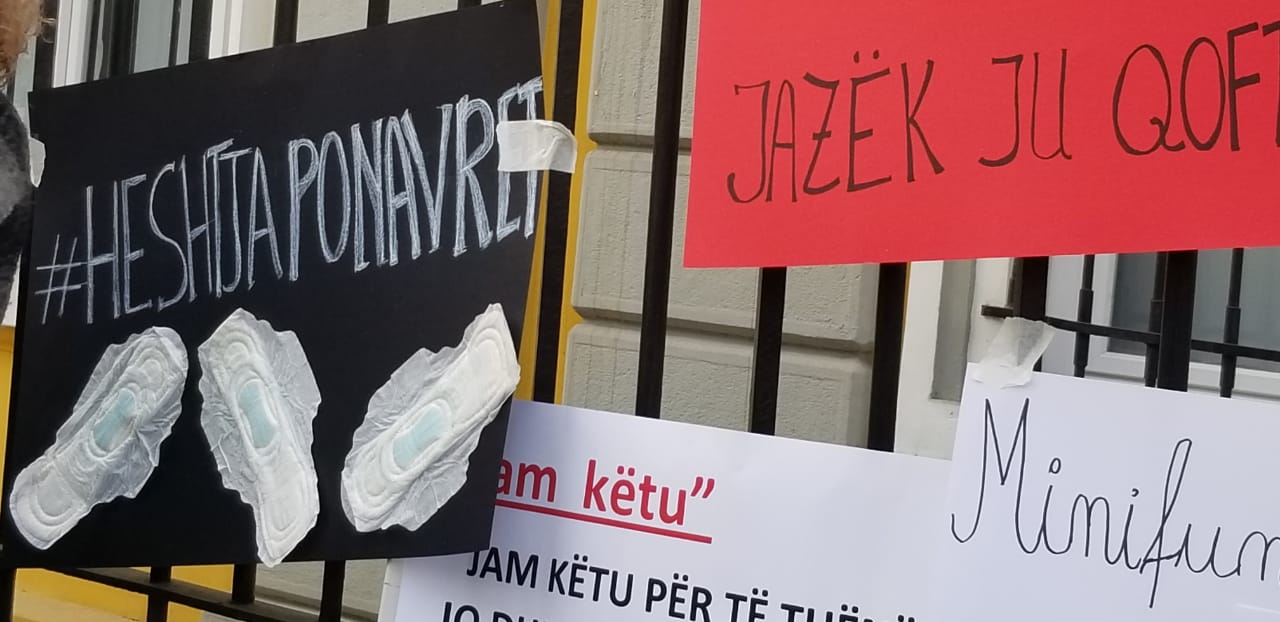 #HESHTJAPONAVRET
JAZËK JU QOFT
am këtu”
JAM KËTU PËR TË
Minifun